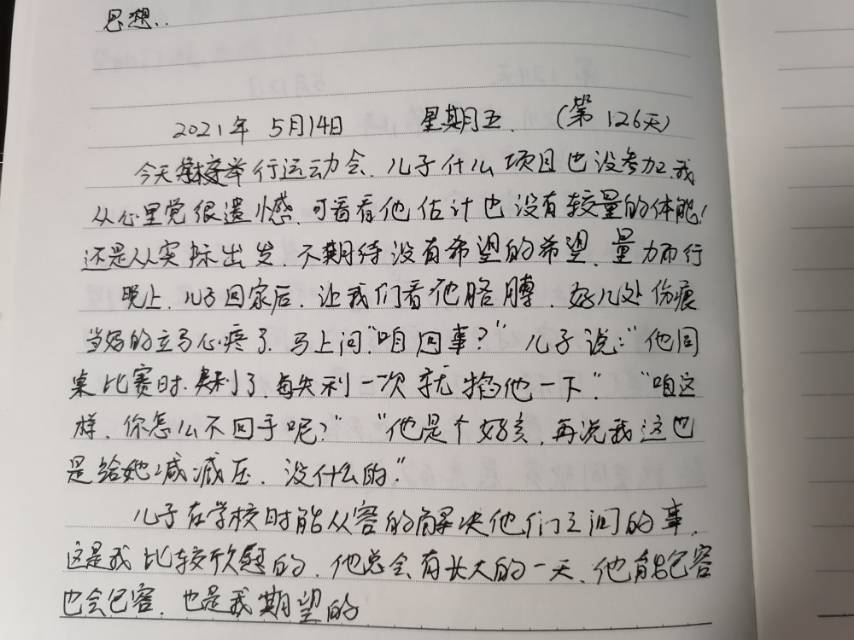 思想..
2021年 5月14日 星期五. (第126天)
今天学校举行运动会.儿子什么项目也没参加.我
从心里觉很遗憾.可看看他估计也没有较量的体能!
还是从实际出发.不期待没有希望的希望.量力而行
晚上.儿子回家后.让我们看他胳膊.好几处伤痕
当妈的立马心疼了.马上问:"咱回事?" 儿子说:"他同
桌比赛时.失利了.每失利一次就掐他一下". "咱这
样.你怎么不回手呢?" "他是个好孩.再说我这也
是给她减减压.没什么的."
儿子在学校时能从容的解决他们之间的事.
这是我比较欣慰的.他总会有长大的一天.他能包容
也会包容.也是我期望的